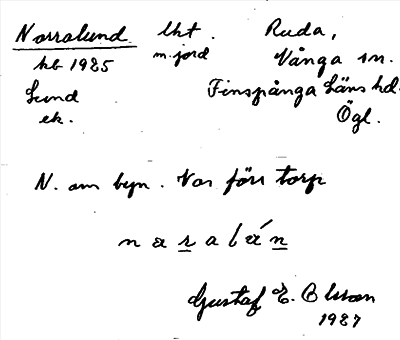 Norralund lht. Ruda,
kb 1925 m. jord Vånga sn.
Lund Finspånga läns hd.
ek. Ögl.
N. om byn. Var förr torp
Gustaf E. Olsson
1927